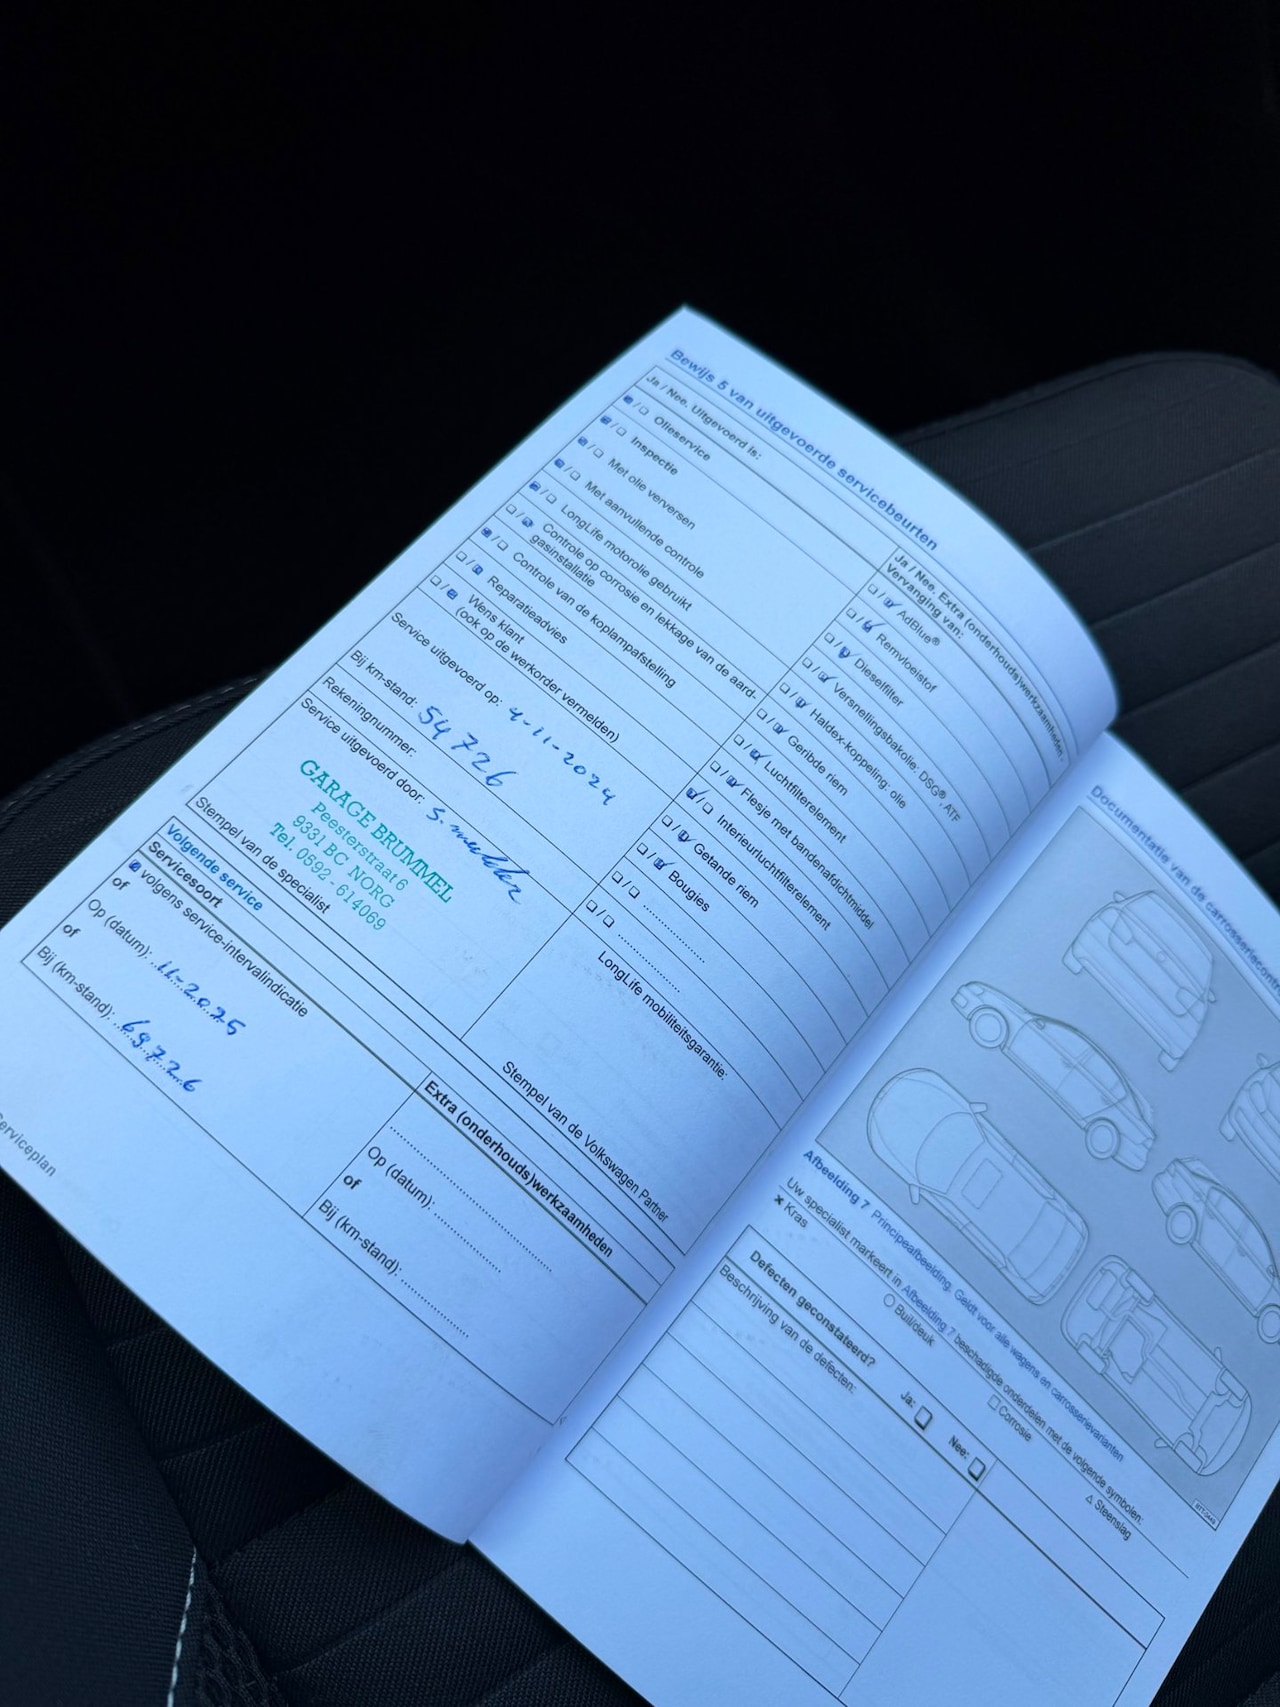 Bewijs 5 van uitgevoerde servicebeurten
Ja / Nee. Uitgevoerd is:
Olieservice
Inspectie
Met olie verversen
Met aanvullende controle
LongLife motorolie gebruikt
Controle op corrosie en lekkage van de aard-
gasinstallatie
Controle van de koplampafstelling
Reparatieadvies
Wens klant
(ook op de werkorder vermelden)
Service uitgevoerd op: 4-11-2024
Bij km-stand: 54726
Rekeningnummer:
Service uitgevoerd door:
GARAGE BRUMMEL
Peesterstraat 6
9331 BC NORG
Tel. 0592 - 614069
Stempel van de specialist
Ja / Nee. Extra (onderhouds)werkzaamheden -
Vervanging van:
AdBlue®
Remvloeistof
Dieselfilter
Versnellingsbakolie: DSG®, ATF
Haldex-koppeling: olie
Geribde riem
Luchtfilterelement
Flesje met bandenafdichtmiddel
Interieurluchtfilterelement
Getande riem
Bougies
LongLife mobiliteitsgarantie:
Stempel van de Volkswagen Partner
Volgende service
Servicesoort
volgens service-intervalindicatie
of
Op (datum): 11-2025
of
Bij (km-stand): 69726
Extra (onderhouds)werkzaamheden
Op (datum):
of
Bij (km-stand):
Serviceplan
Documentatie van de carrosseriecontr
Afbeelding 7 Principeafbeelding. Geldt voor alle wagens en carrosserievarianten
Uw specialist markeert in Afbeelding 7 beschadigde onderdelen met de volgende symbolen:
× Kras
○ Buil/deuk
□ Corrosie
△ Steenslag
Defecten geconstateerd?
Ja:
Nee:
Beschrijving van de defecten: